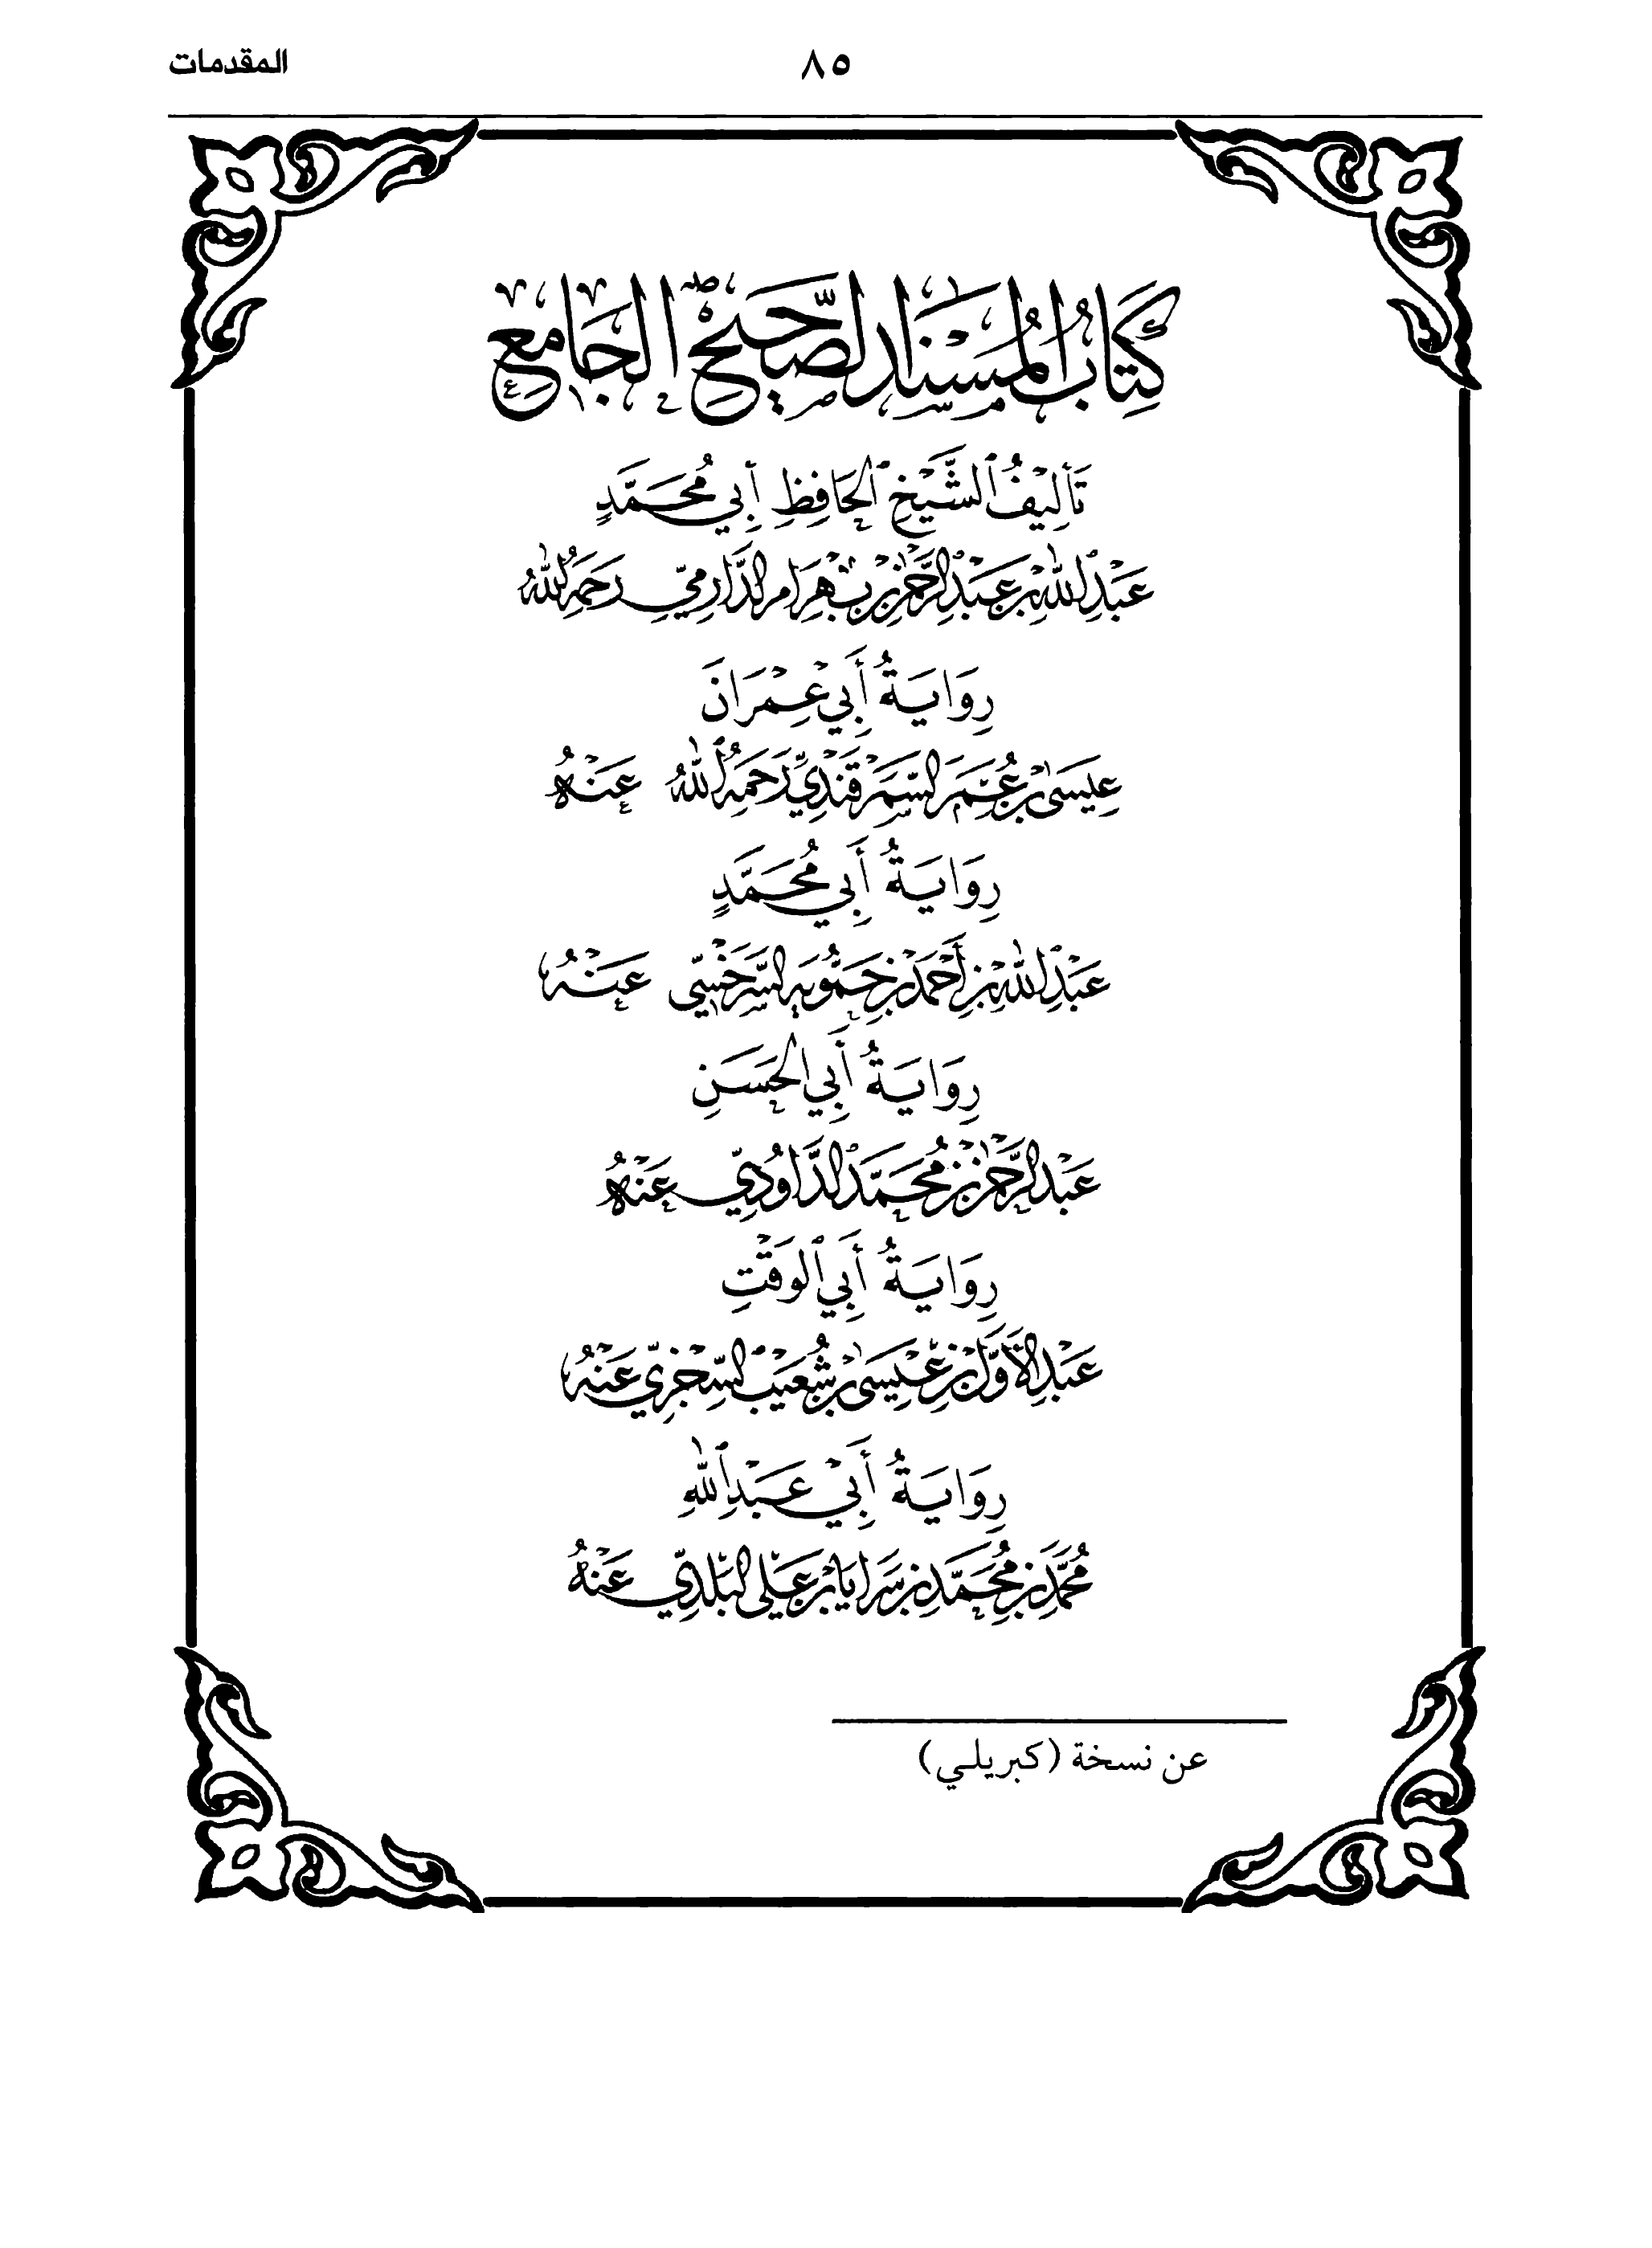 المقدمات
٨٥
كِتَابُ المُسْنَدِ الصَّحِيحِ الجَامِعِ
تَأْلِيفُ الشَّيْخِ الحَافِظِ أَبِي مُحَمَّدٍ
عَبْدِ اللهِ بْنِ عَبْدِ الرَّحْمٰنِ بْنِ بَهْرَامَ الدَّارِمِيِّ رَحِمَهُ اللهُ
رِوَايَةُ أَبِي عِمْرَانَ
عِيسَى بْنِ عُمَرَ السَّمَرْقَنْدِيِّ رَحِمَهُ اللهُ عَنْهُ
رِوَايَةُ أَبِي مُحَمَّدٍ
عَبْدِ اللهِ بْنِ أَحْمَدَ بْنِ حَمُّوْيَهِ السَّرَخْسِيِّ عَنْهُ
رِوَايَةُ أَبِي الحَسَنِ
عَبْدِ الرَّحْمٰنِ بْنِ مُحَمَّدٍ الدَّاوُدِيِّ عَنْهُ
رِوَايَةُ أَبِي الوَقْتِ
عَبْدِ الأَوَّلِ بْنِ عِيْسَى بْنِ شُعَيْبٍ السِّجْزِيِّ عَنْهُ
رِوَايَةُ أَبِيْ عَبْدِ اللهِ
مُحَمَّدِ بْنِ مُحَمَّدِ بْنِ سَرَايَا بْنِ عَلِي البَلَدِيِّ عَنْهُ
عن نسخة (كبريلي)